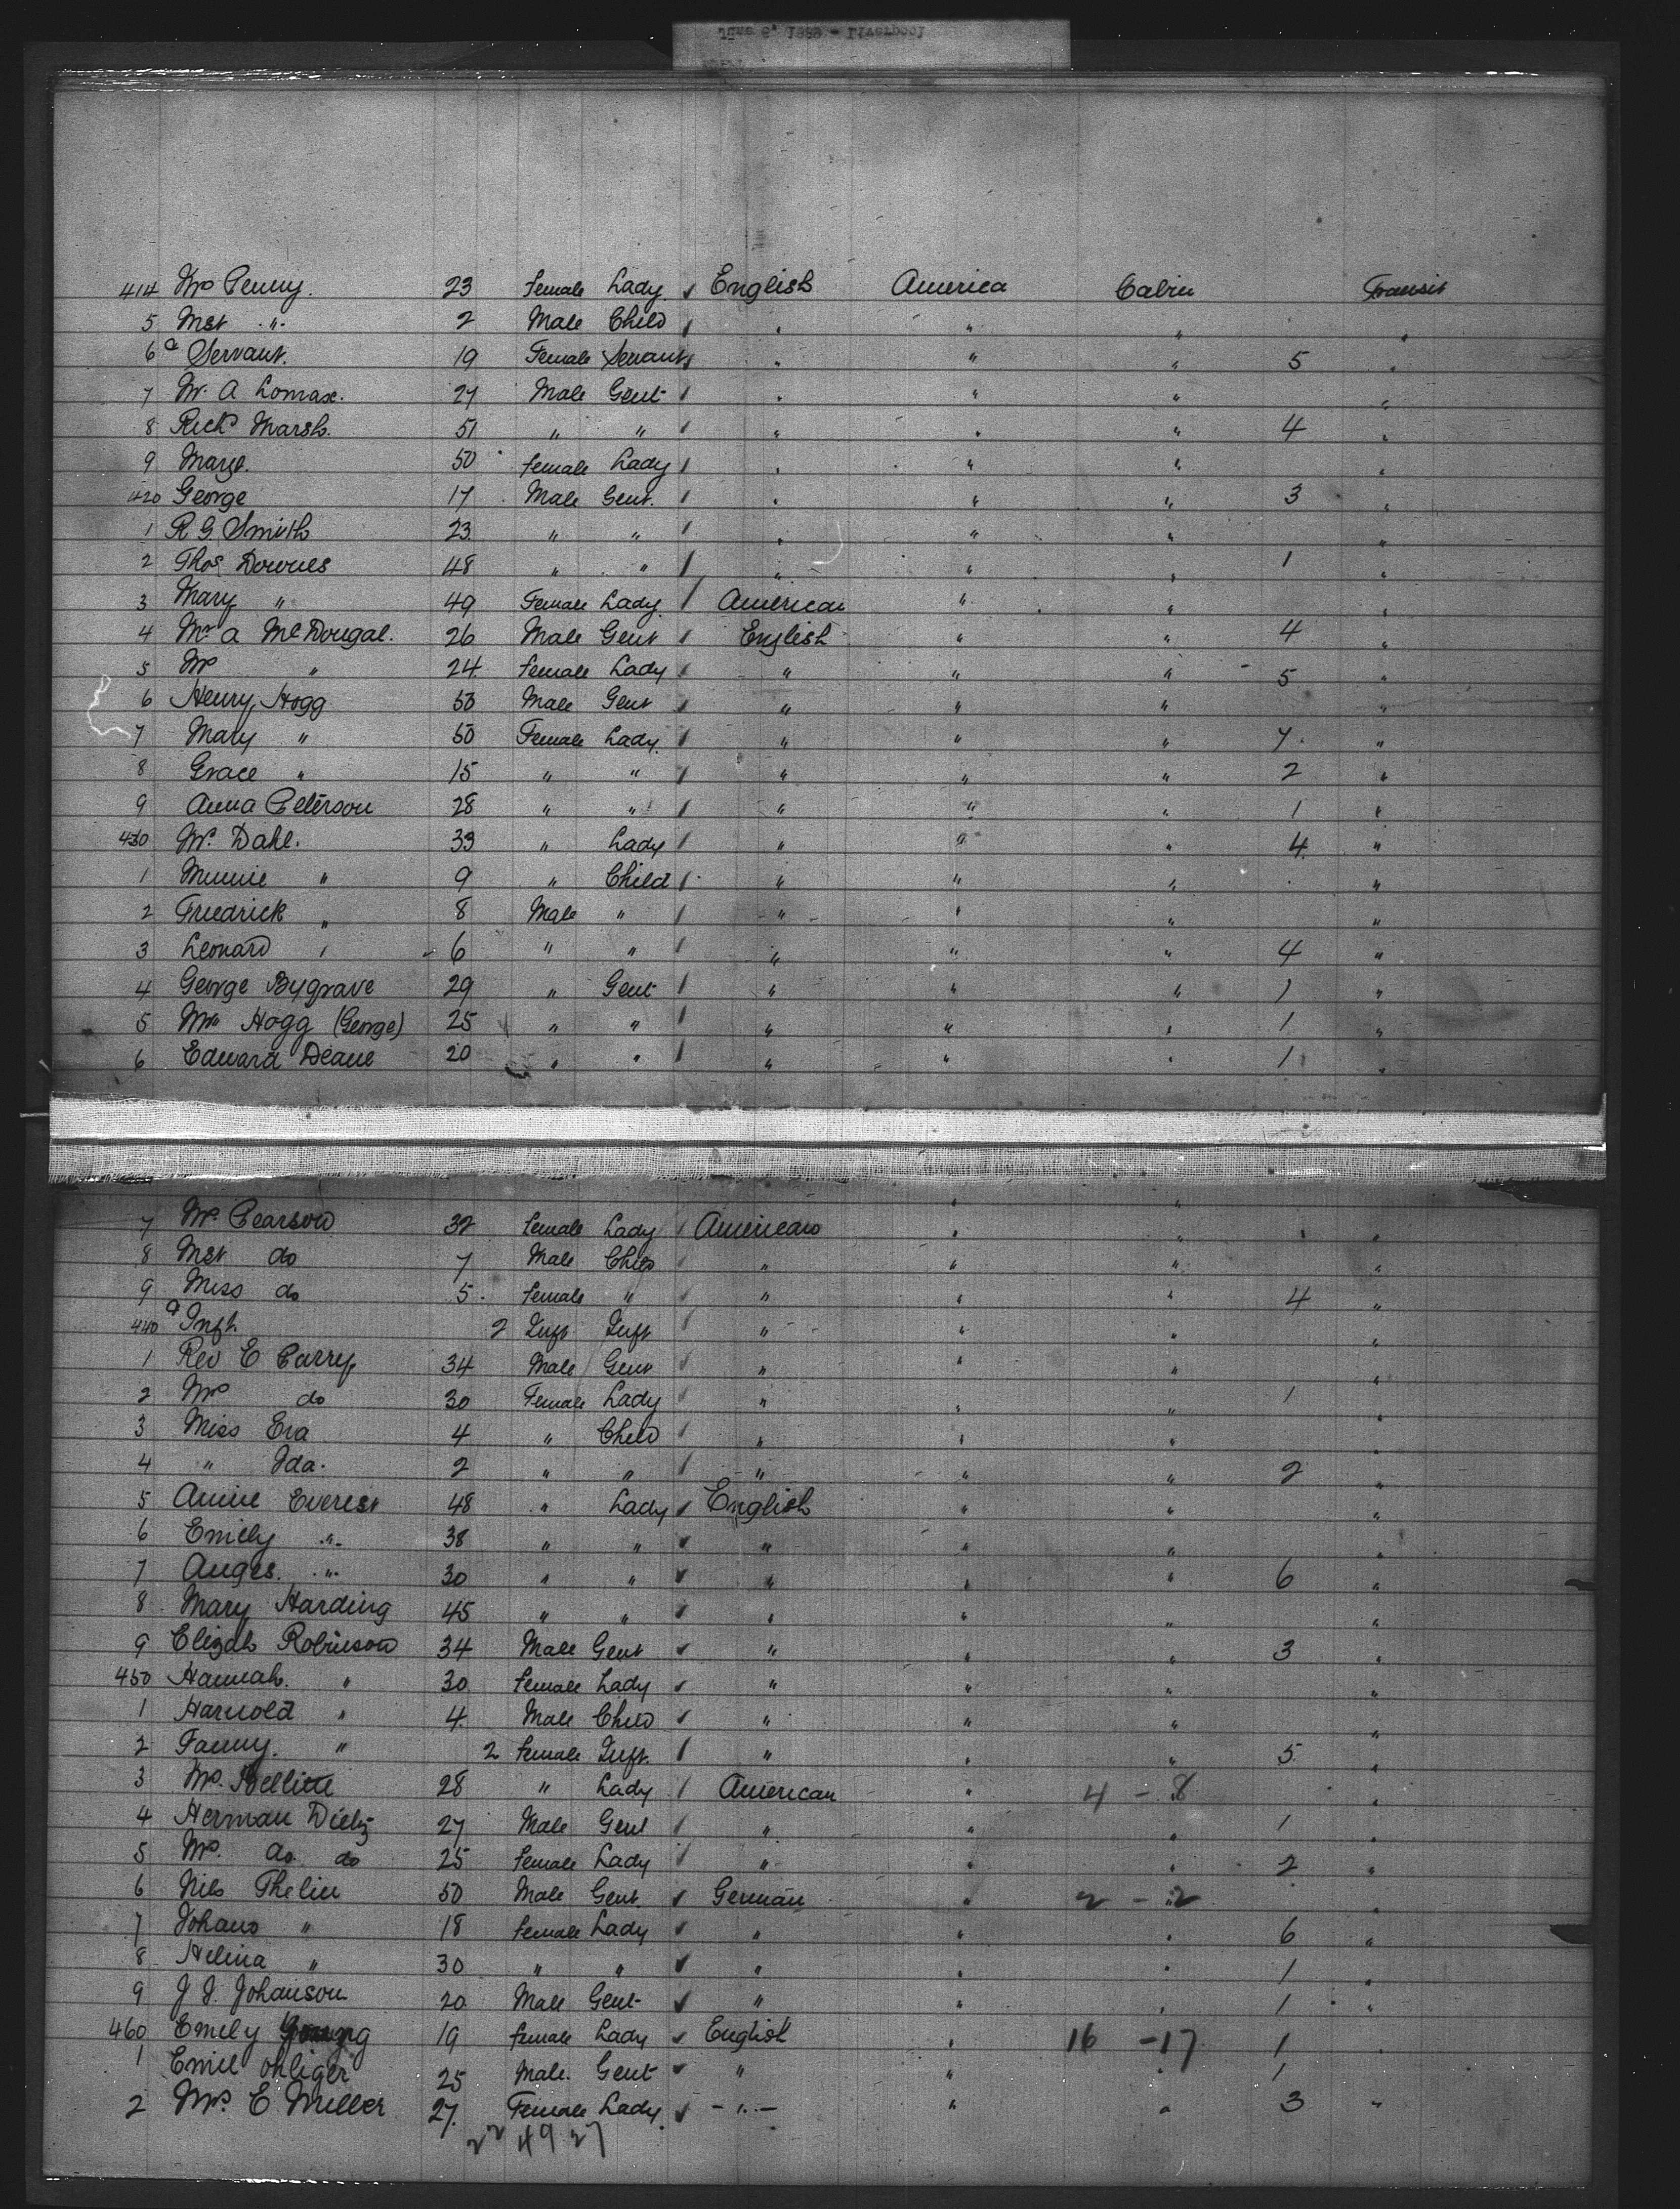 June 6, 1889 - Liverpool
414 Mrs Penny. 23 Female Lady English America Cabin Transit
5 Mst " 2 Male Child " " " "
6 a Servant. 19 Female Servant " " " 5 "
7 W. A Lomax. 27 Male Gent " " " "
8 Richd Marsh. 51 " " " " " 4 "
9 Margt. 50 Female Lady " " " "
420 George 17 Male Gent. " " " 3 "
1 R G Smith 23 " " " " " "
2 Thos Downes 48 " " " " " 1 "
3 Mary " 49 Female Lady American " " "
4 Mr A McDougal. 26 Male Gent English " " 4 "
5 Mrs " 24 Female Lady " " " 5 "
6 Henry Hogg 53 Male Gent " " " "
7 Mary " 50 Female Lady. " " " 7 "
8 Grace " 15 " " " " " 2 "
9 Anna Peterson 28 " " " " " 1 "
430 Mrs. Dahl. 33 " Lady " " " 4 "
1 Minnie " 9 " Child " " " "
2 Fredrick " 8 Male " " " " "
3 Leonard " 6 " " " " " 4 "
4 George Bygrave 29 " Gent " " " 1 "
5 Mr Hogg (George) 25 " " " " " 1 "
6 Edward Deane 20 " " " " " 1 "
7 Mrs Pearson 32 Female Lady American " " "
8 Mst do 7 Male Child " " " "
9 Miss do 5 Female " " " " 4 "
440 a Inft. 2 Inft Inft " " " "
1 Rev E Carry 34 Male Gent " " " "
2 Mrs do 30 Female Lady " " " 1 "
3 Miss Eva 4 " Child " " " "
4 " Ida. 2 " " " " " 2 "
5 Annie Everest 48 " Lady English " " "
6 Emily " 38 " " " " " "
7 Anges. " 30 " " " " " 6 "
8 Mary Harding 45 " " " " " "
9 Elizah Robinson 34 Male Gent " " " 3 "
450 Hannah. " 30 Female Lady " " " "
1 Harnold " 4. Male Child " " " "
2 Fanny. " 2 Female Inft. " " " 5 "
3 Mrs. 28 " Lady American " 4 - 8 "
4 Herman Dietz 27 Male Gent " " " 1 "
5 Mrs. do. do 25 Female Lady " " " 2 "
6 Nils Thelin 50 Male Gent. German " 2 - 2 "
7 Johans " 18 Female Lady " " " 6 "
8 Helina " 30 " " " " " 1 "
9 J J. Johanson 20 Male Gent " " " 1 "
460 Emely Young 19 Female Lady English " 16 - 17 1 "
1 Emil Ohliger 25 Male. Gent " " " 1
2 Mrs. E Miller 27. Female Lady. " " " 3 "
22 49 27